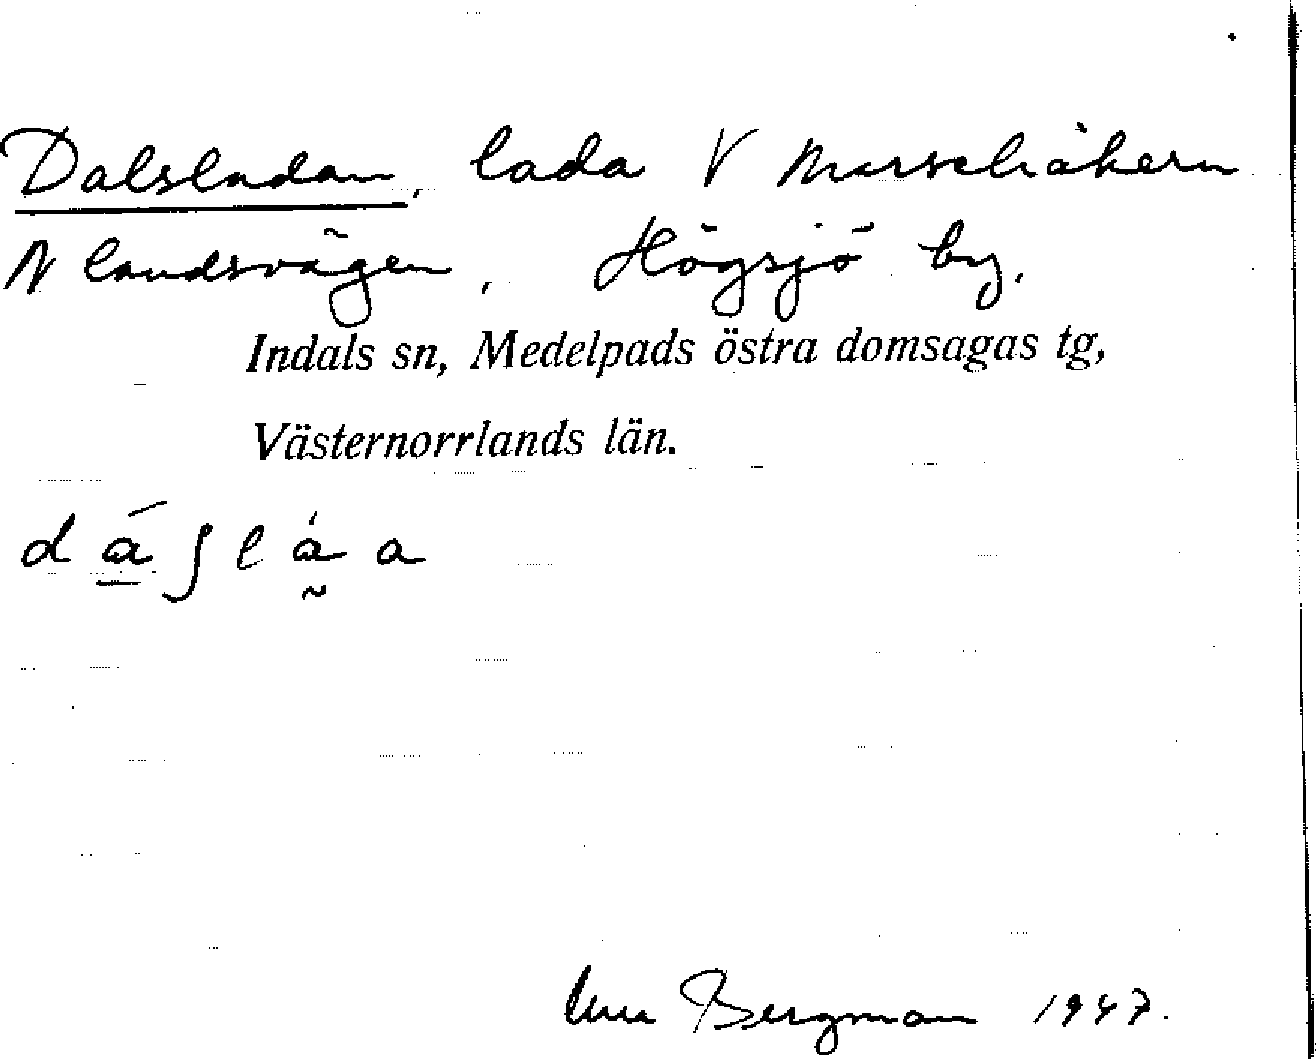 Dalsladan, lada V
N landsvägen, Högsjö by.
Indals sn, Medelpads östra domsagas tg,
Västernorrlands län.
dá̱ʃlá̰a
Bergman 1947.